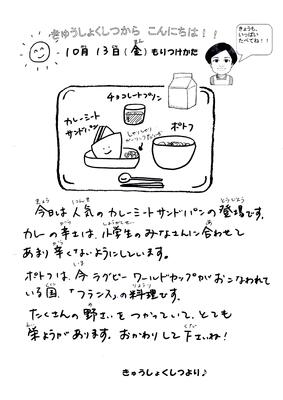 きゅうしょくしつから こんにちは!!
きょうも、
いっぱい
たべてね!!
10月 13日(金)もりつけかた
チョコレートプリン
カレーミート
サンドパン
ポトフ
今日は人気のカレーミートサンドパンの登場です。
カレーの辛さは、小学生のみなさんに合わせて
あまり辛くないようにしています。
ポトフは、今ラグビーワールドカップがおこなわれて
いる国、「フランス」の料理です。
たくさんの野さいをつかっていて、とても
栄ようがあります。おかわりして下さいね!
きゅうしょくしつより♪